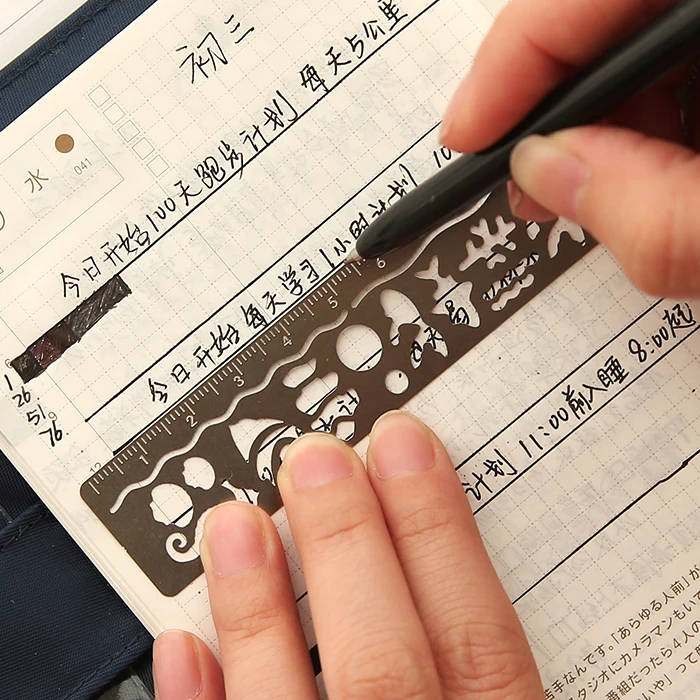 初三
水
041
今日开始100天跑步计划 每天5公里
今日开始每天学习1小时计划 10
1
26
51
76
1 2 3 4 5 6
计划 11:00前入睡 8:00起
苦手なんです。「あらゆる人前」が
タジオにカメラマンもいて
番組だったら4人の
いや」って